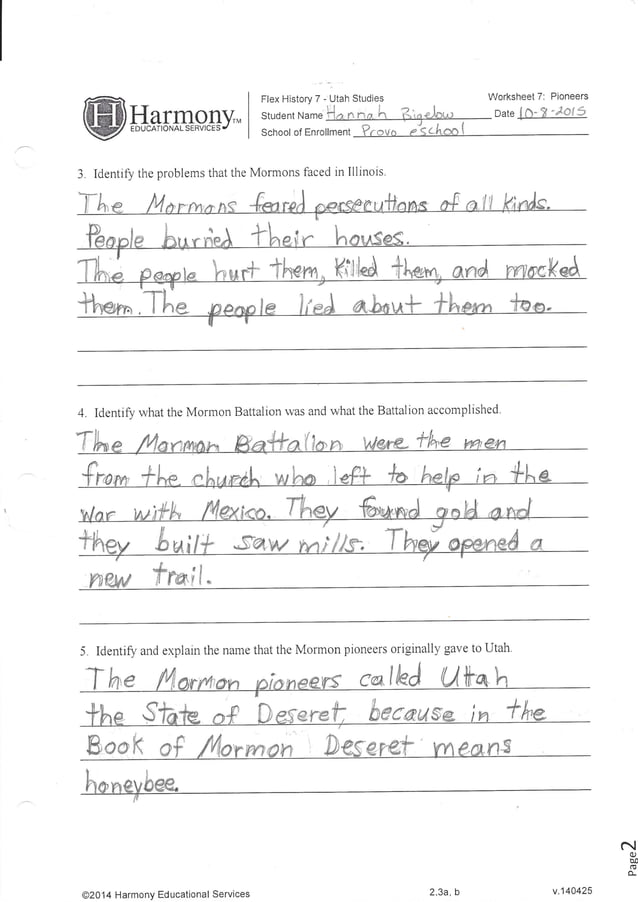 Harmony TM
EDUCATIONAL SERVICES
Flex History 7 - Utah Studies
Worksheet 7: Pioneers
Student Name Hannah Bigelow
Date 10-8-2015
School of Enrollment Provo eschool
3. Identify the problems that the Mormons faced in Illinois.
The Mormons feared persecutions of all kinds.
People burned their houses.
The people hurt them, killed them, and mocked
them. The people lied about them too.
4. Identify what the Mormon Battalion was and what the Battalion accomplished.
The Mormon Battalion were the men
from the church who left to help in the
war with Mexico. They found gold and
they built saw mills. They opened a
new trail.
5. Identify and explain the name that the Mormon pioneers originally gave to Utah.
The Mormon pioneers called Utah
the State of Deseret, because in the
Book of Mormon Deseret means
honeybee.
Page 2
©2014 Harmony Educational Services
2.3a, b
v.140425